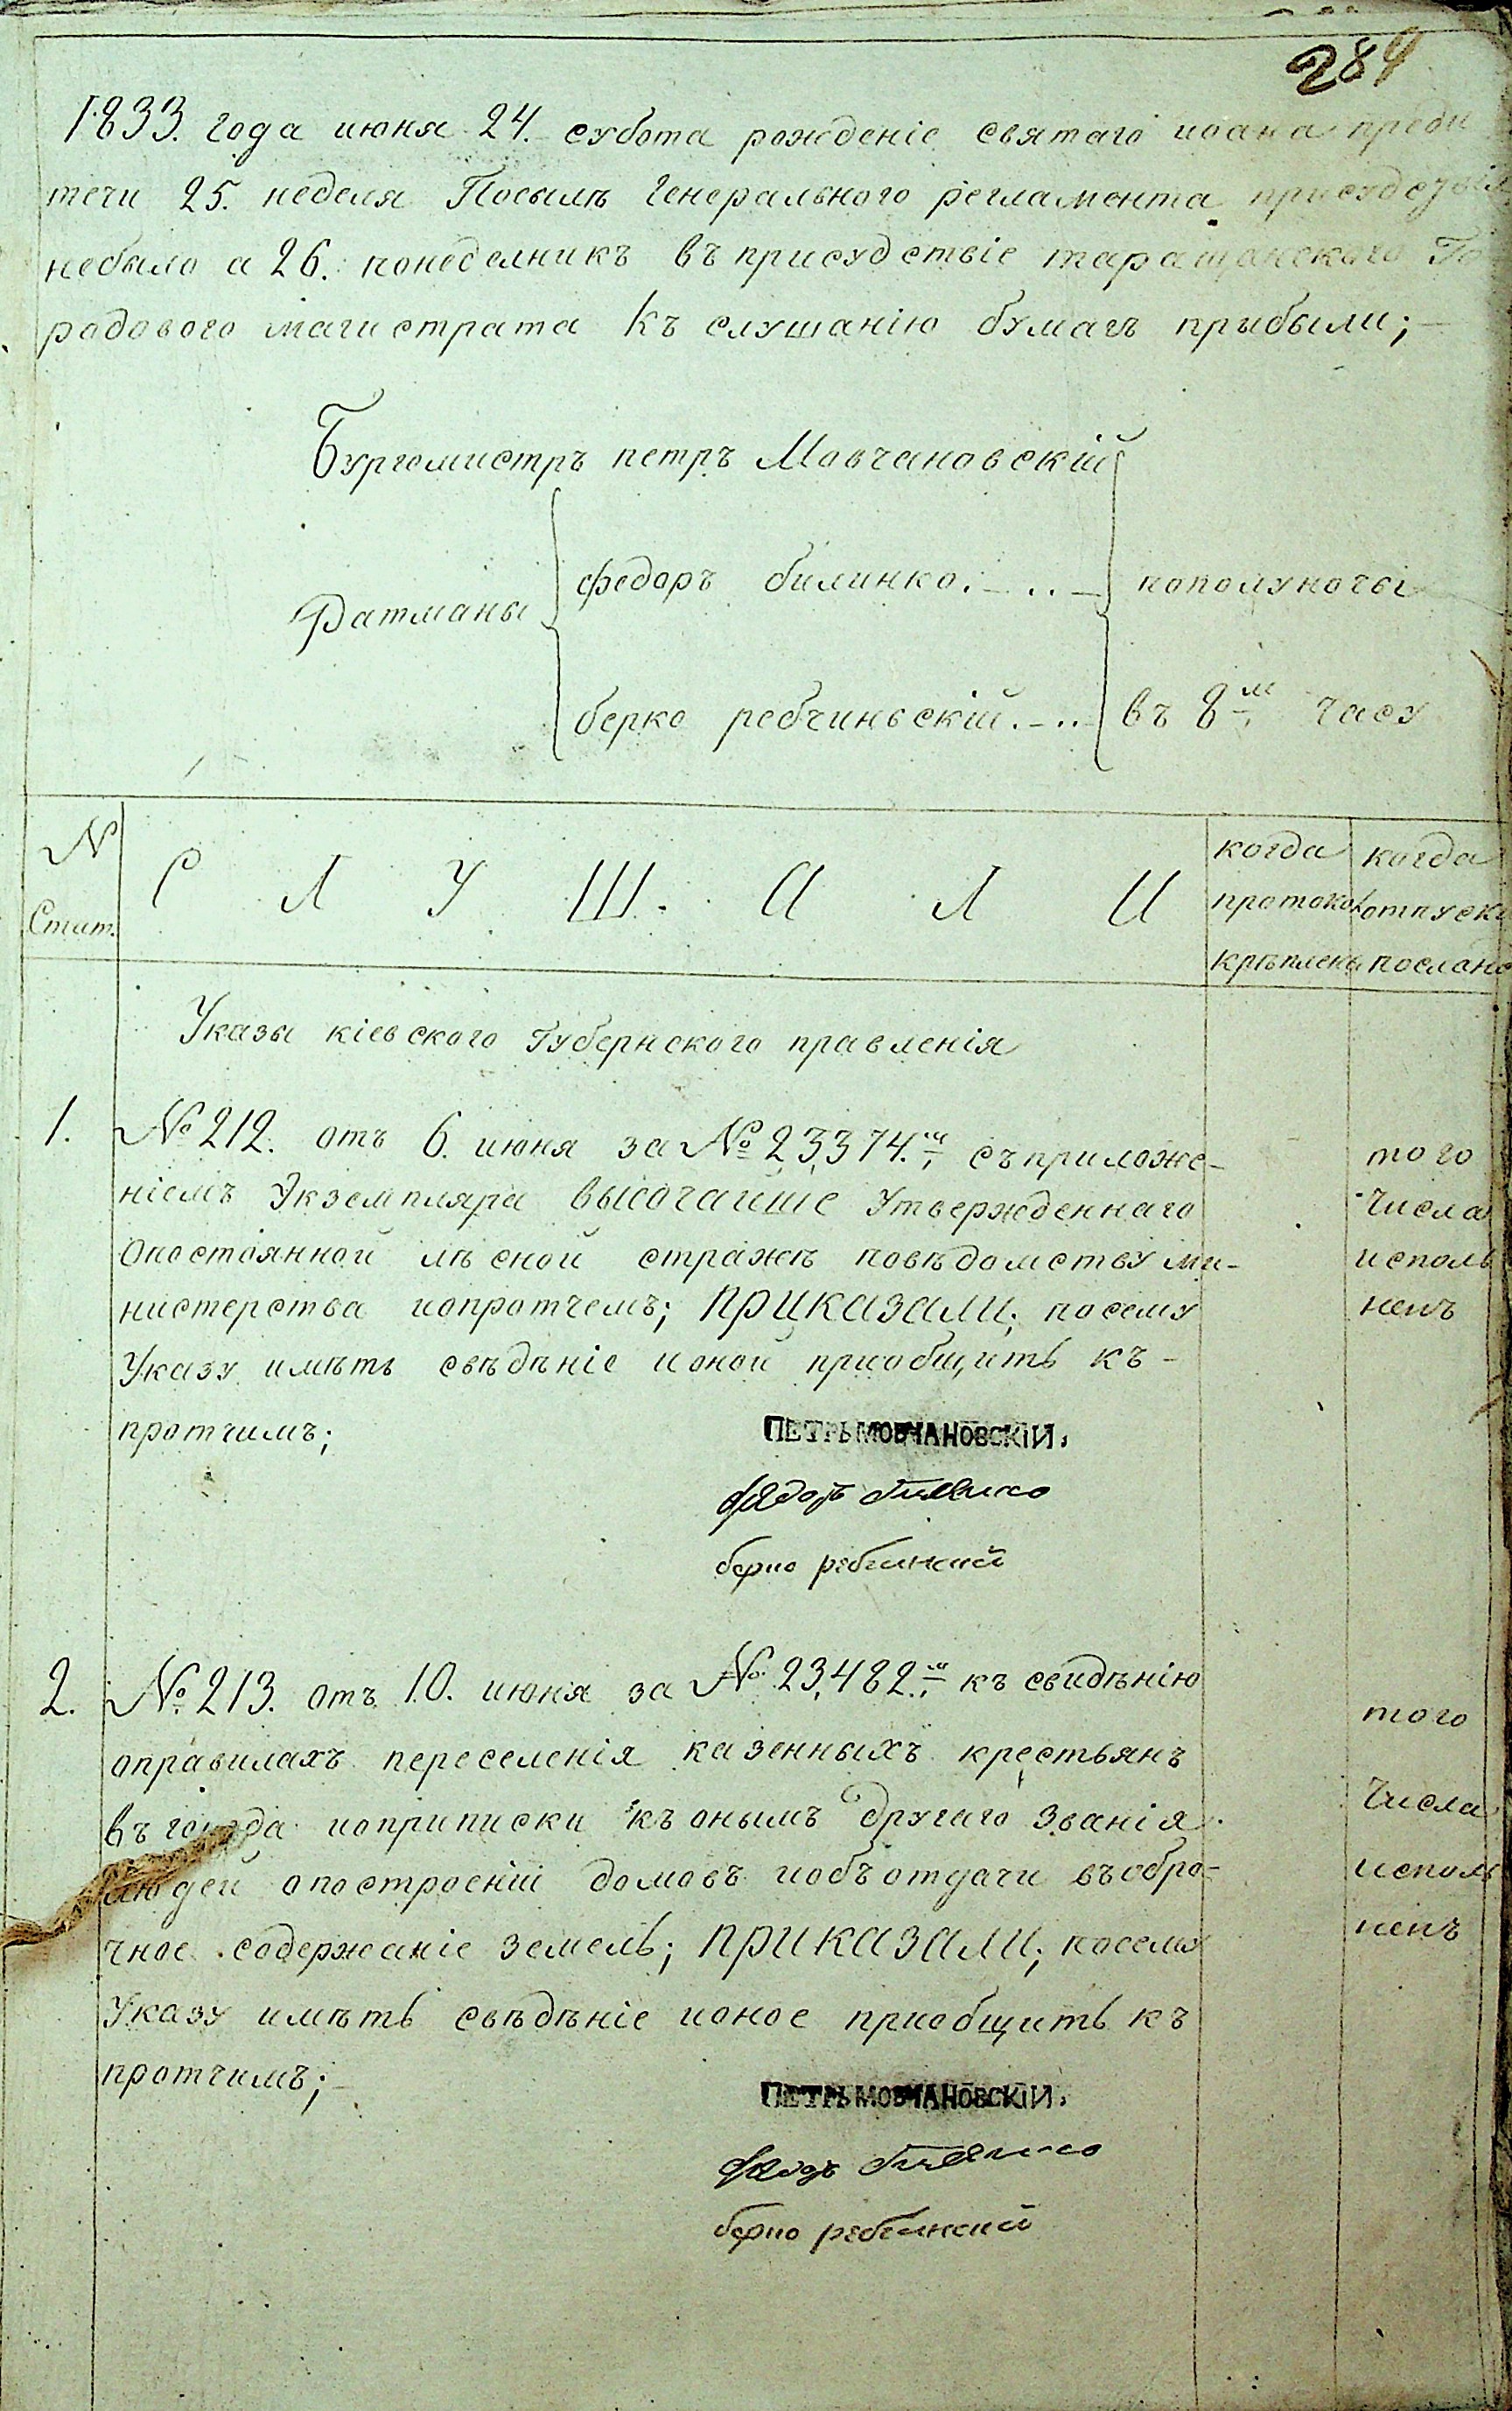 284
1833. года июня 24. субота рожденіе святаго иоана преди
течи 25. неделя Посылѣ Генерального регламента присудствія
небыло а 26. понеделникъ въ присудствіе таращанского Го
родового магистрата къ слушанію бумагъ прыбыли;
Бургомистръ петръ Мовчановскій
Ратманы
федоръ билинко. - .. -
пополуночы
берко ребчиньскій. - ..
въ 8м часу
N Стат.
С Л У Ш А Л И
когда протокол крѣплены
когда отпуски посланы
Указы кіевского Губернского правленія
1. № 212. отъ 6. июня за № 23,374.м съприложе-
ніемъ Экземпляра высочайше Утвержденнаго
Опостоянной лѣсной стражѣ повѣдомству ми-
нистерства ипопротчемъ; приказали; посему
Указу имѣть свѣдѣніе ионой приобщить къ -
протчимъ;
того
Числа
исполь
ненъ
ПЕТРЬ МОВЧАНОВСКІЙ,
федоръ билинко
берко ребчинский
2. № 213. отъ 10. июня за № 23,482.м къ свидѣнію
оправилахъ переселенія казенныхъ крестьянъ
въ города иоприписки къ онымъ другаго Званія
людей опостроеніи домовъ иобъотдачи въобро-
чное содержаніе земель; приказали; посему
Указу имѣть свѣдѣніе ионое приобщить къ
протчимъ;
того
Числа
исполь
ненъ
ПЕТРЬ МОВЧАНОВСКІЙ,
федоръ билинко
берко ребчинский